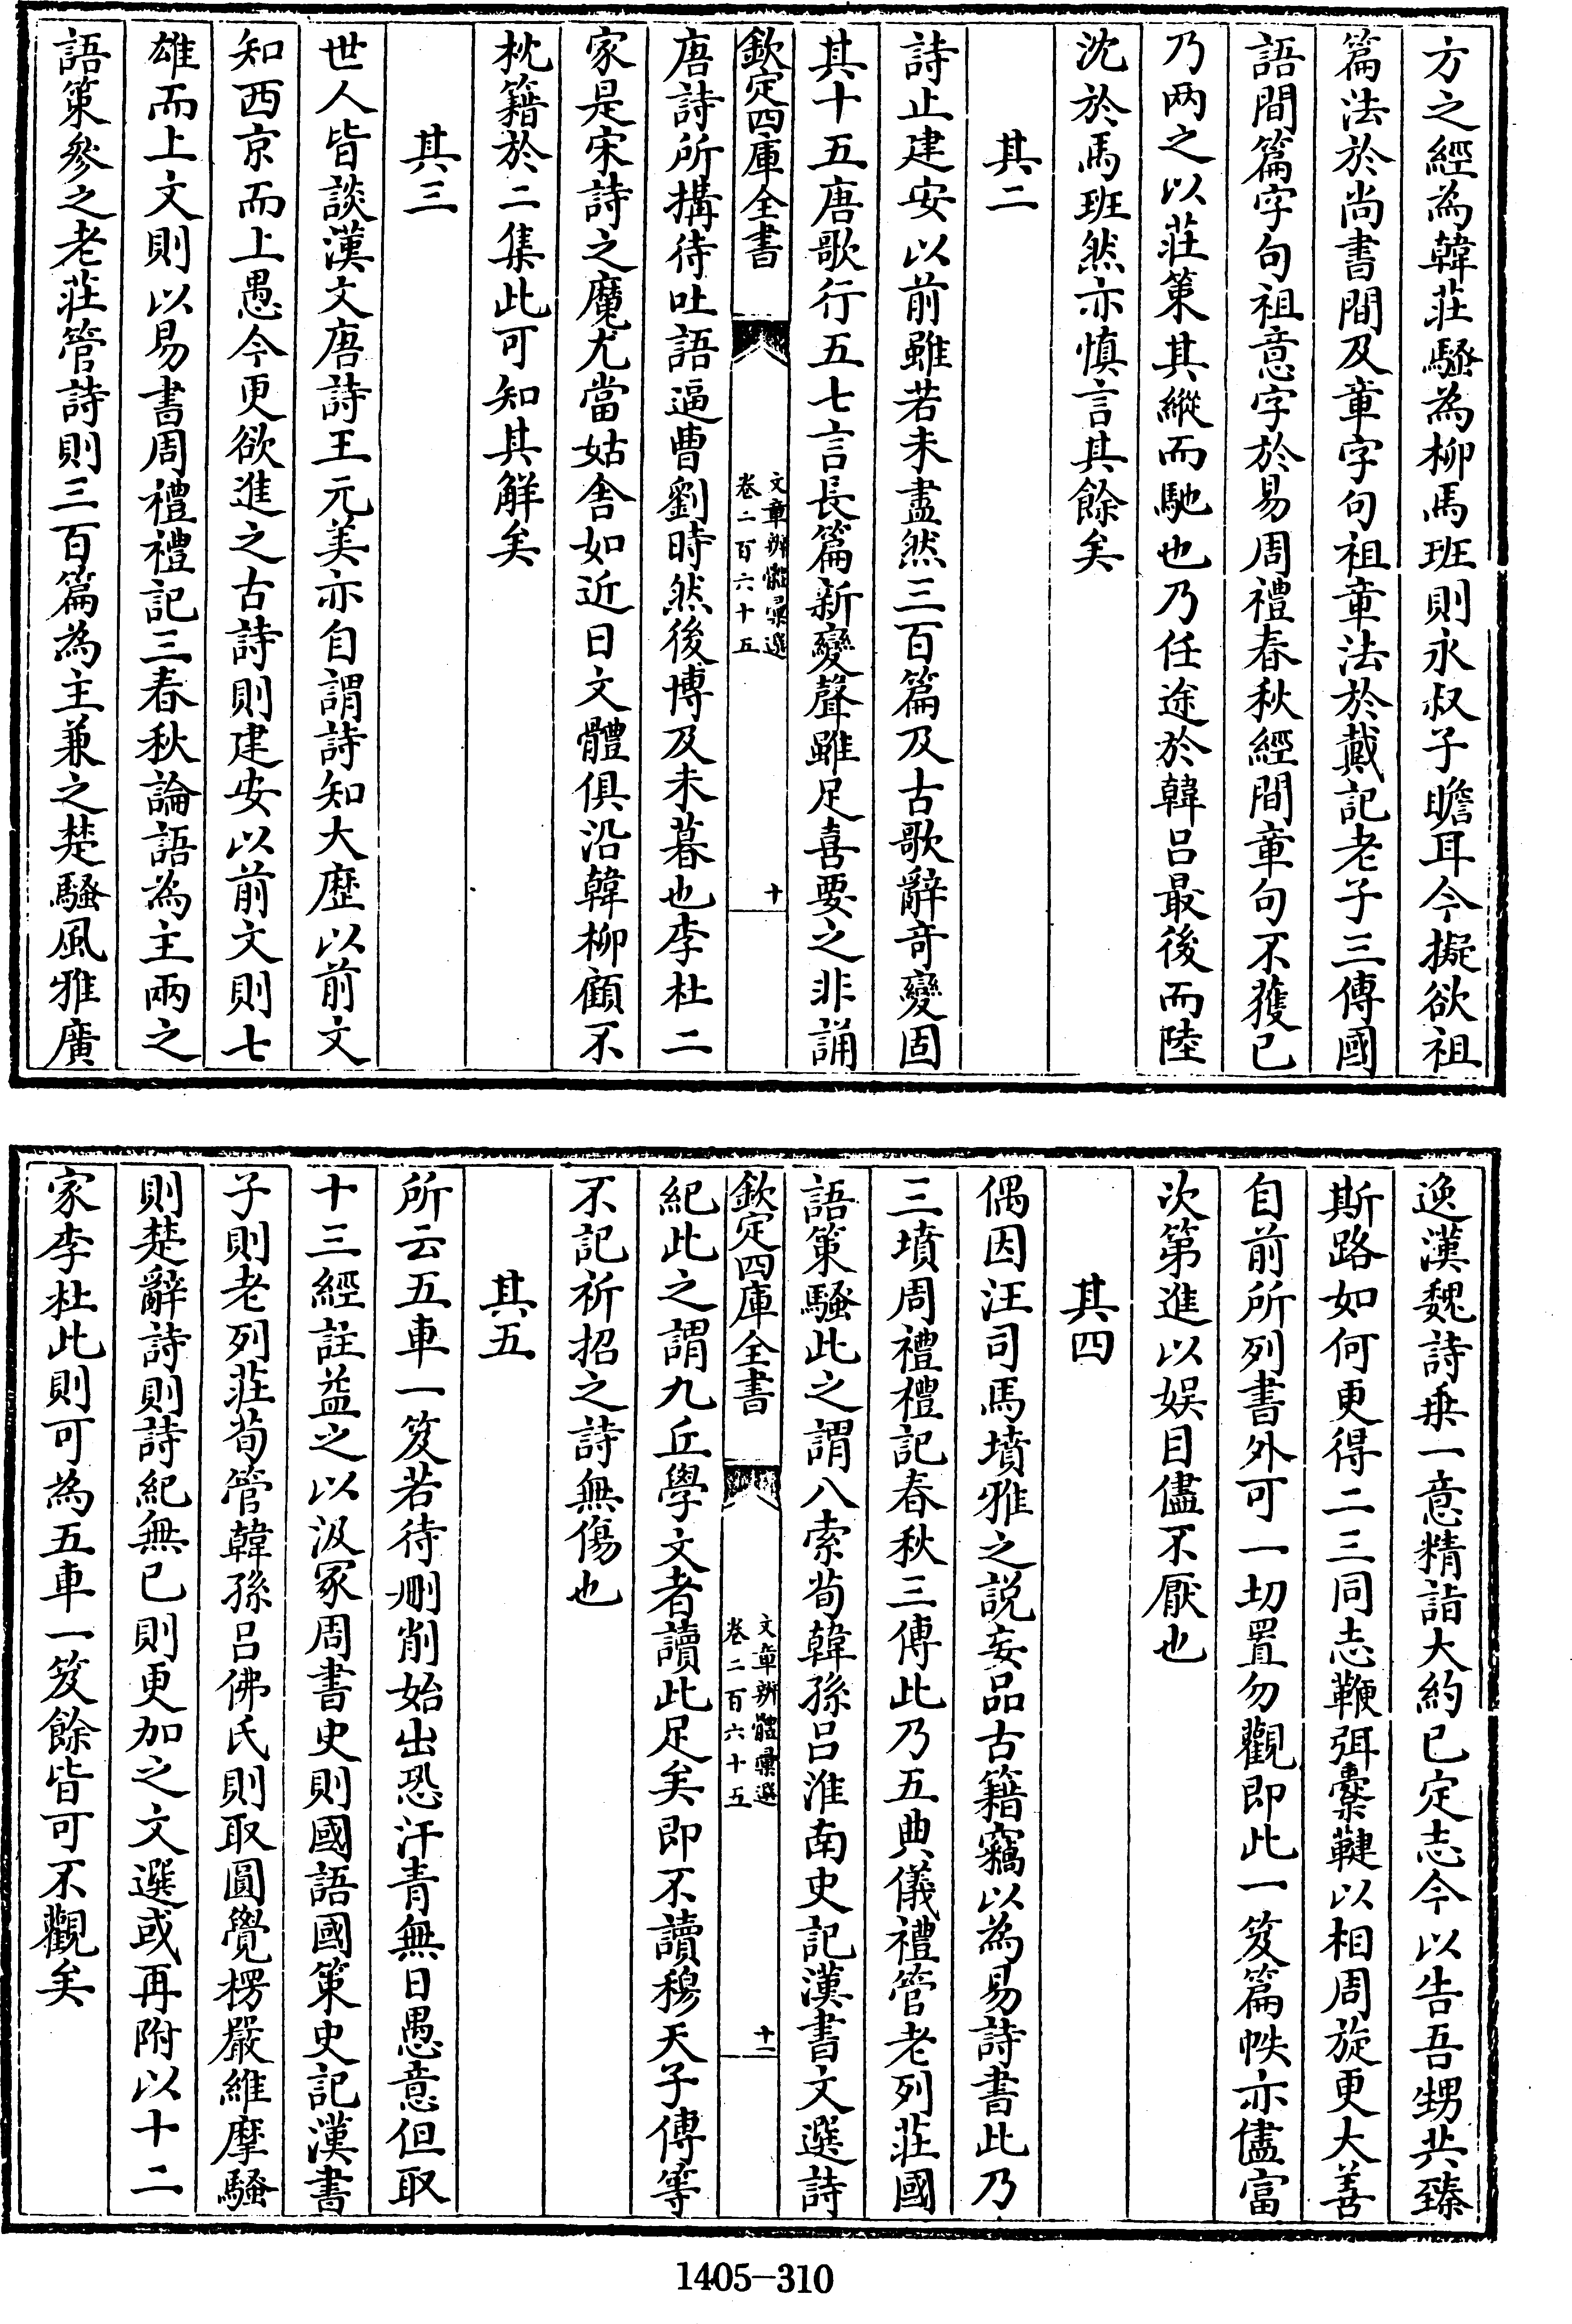 方之經為韓莊騷為柳馬班則永叔子瞻耳今擬欲祖
篇法於尚書間及章字句祖章法於戴記老子三傳國
語間篇字句祖意字於易周禮春秋經間章句不獲已
乃两之以莊策其縱而馳也乃任途於韓呂最後而陸
沈於馬班然亦慎言其餘矣
其二
詩止建安以前雖若未盡然三百篇及古歌辭奇變固
其十五唐歌行五七言長篇新變聲雖足喜要之非誦
欽定四庫全書
文章辨體彙選
卷二百六十五
十
唐詩所搆待吐語逼曹劉時然後博及未暮也李杜二
家是宋詩之魔尤當姑舍如近日文體俱沿韓柳顧不
枕籍於二集此可知其解矣
其三
世人皆談漢文唐詩王元美亦自謂詩知大歷以前文
知西京而上愚今更欲進之古詩則建安以前文則七
雄而上文則以易書周禮禮記三春秋論語為主兩之
語策參之老莊管詩則三百篇為主兼之楚騷風雅廣
逸漢魏詩乗一意精詣大約已定志今以告吾甥共臻
斯路如何更得二三同志鞭弭櫜鞬以相周旋更大善
自前所列書外可一切置勿觀即此一笈篇帙亦儘富
次第進以娱目儘不厭也
其四
偶因汪司馬墳雅之説妄品古籍竊以為易詩書此乃
三墳周禮禮記春秋三傳此乃五典儀禮管老列莊國
語策騷此之謂八索荀韓孫呂淮南史記漢書文選詩
欽定四庫全書
文章辨體彙選
卷二百六十五
十一
紀此之謂九丘學文者讀此足矣即不讀穆天子傳等
不記祈招之詩無傷也
其五
所云五車一笈若待刪削始出恐汗青無日愚意但取
十三經註益之以汲冢周書史則國語國策史記漢書
子則老列莊荀管韓孫呂佛氏則取圓覺楞嚴維摩騷
則楚辭詩則詩紀無已則更加之文選或再附以十二
家李杜此則可為五車一笈餘皆可不觀矣
1405—310